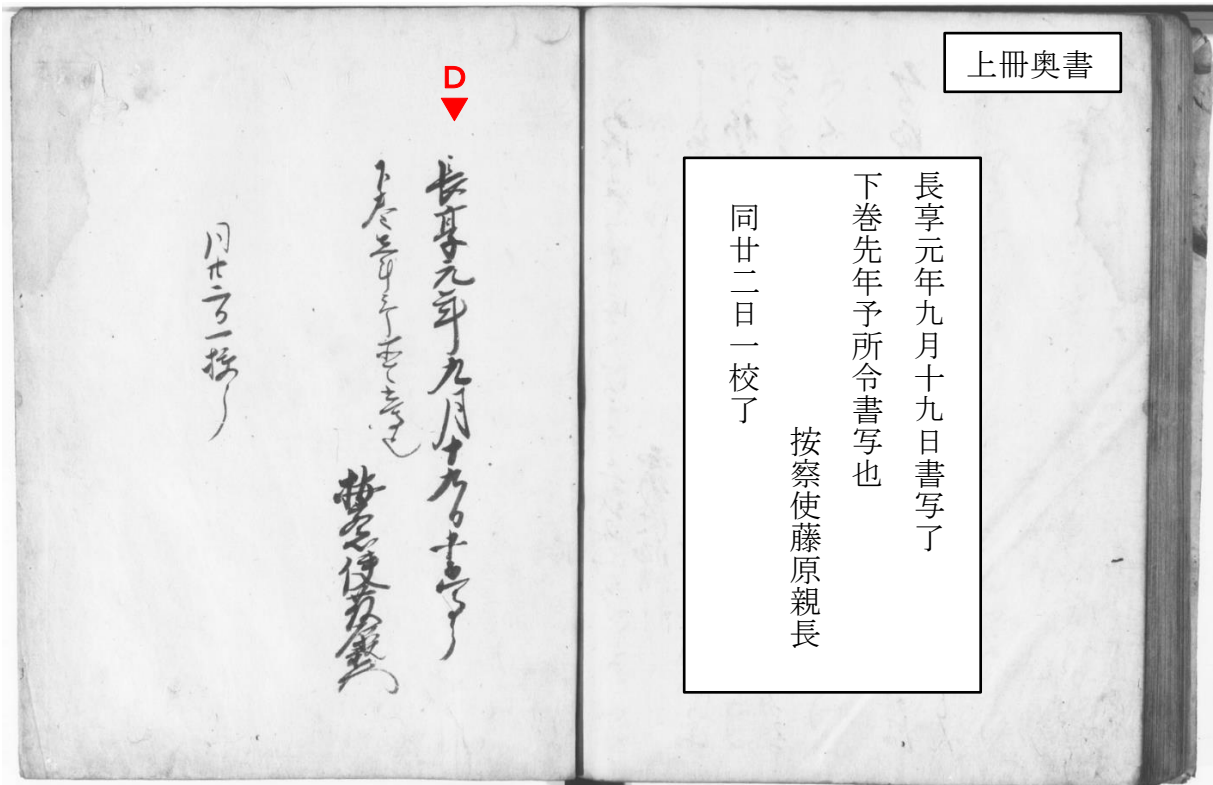 上冊奥書
長享元年九月十九日書写了
下巻先年予所令書写也
按察使藤原親長
同廿二日一校了
D
長享元年九月十九日書写了
下巻先年予所令書写也
按察使藤原親長
同廿二日一校了